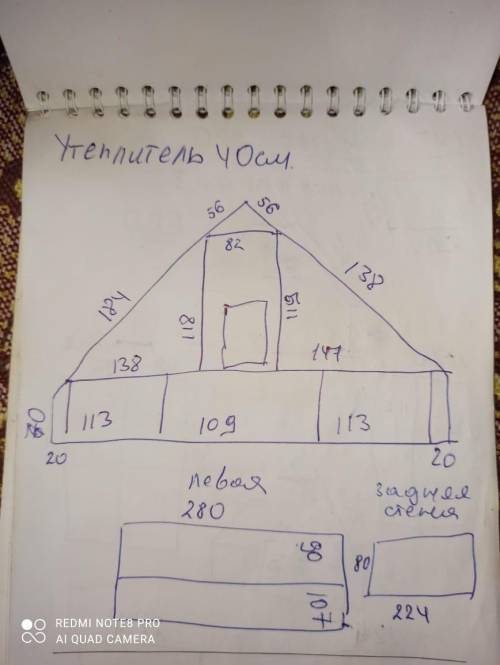 Утеплитель 40см.
56 56
82
184 138
118 115
138 147
80 113 109 113
20 20
левая задняя
280 стена
80
107
224
REDMI NOTE8 PRO
AI QUAD CAMERA